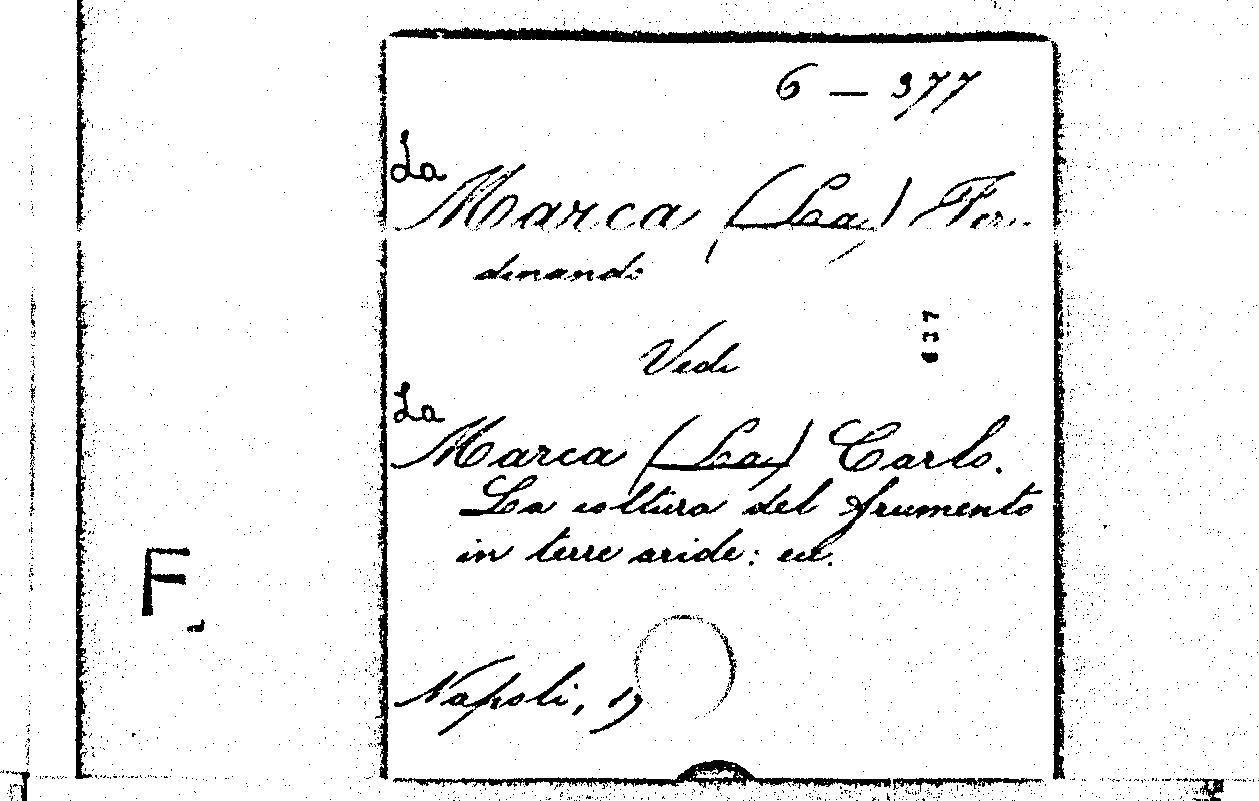 6 — 377
La
Marca (La) Fer-
dinando
Vedi
637
La
Marca (La) Carlo.
La coltura del frumento
in terre aride: ecc.
F
Napoli, 19